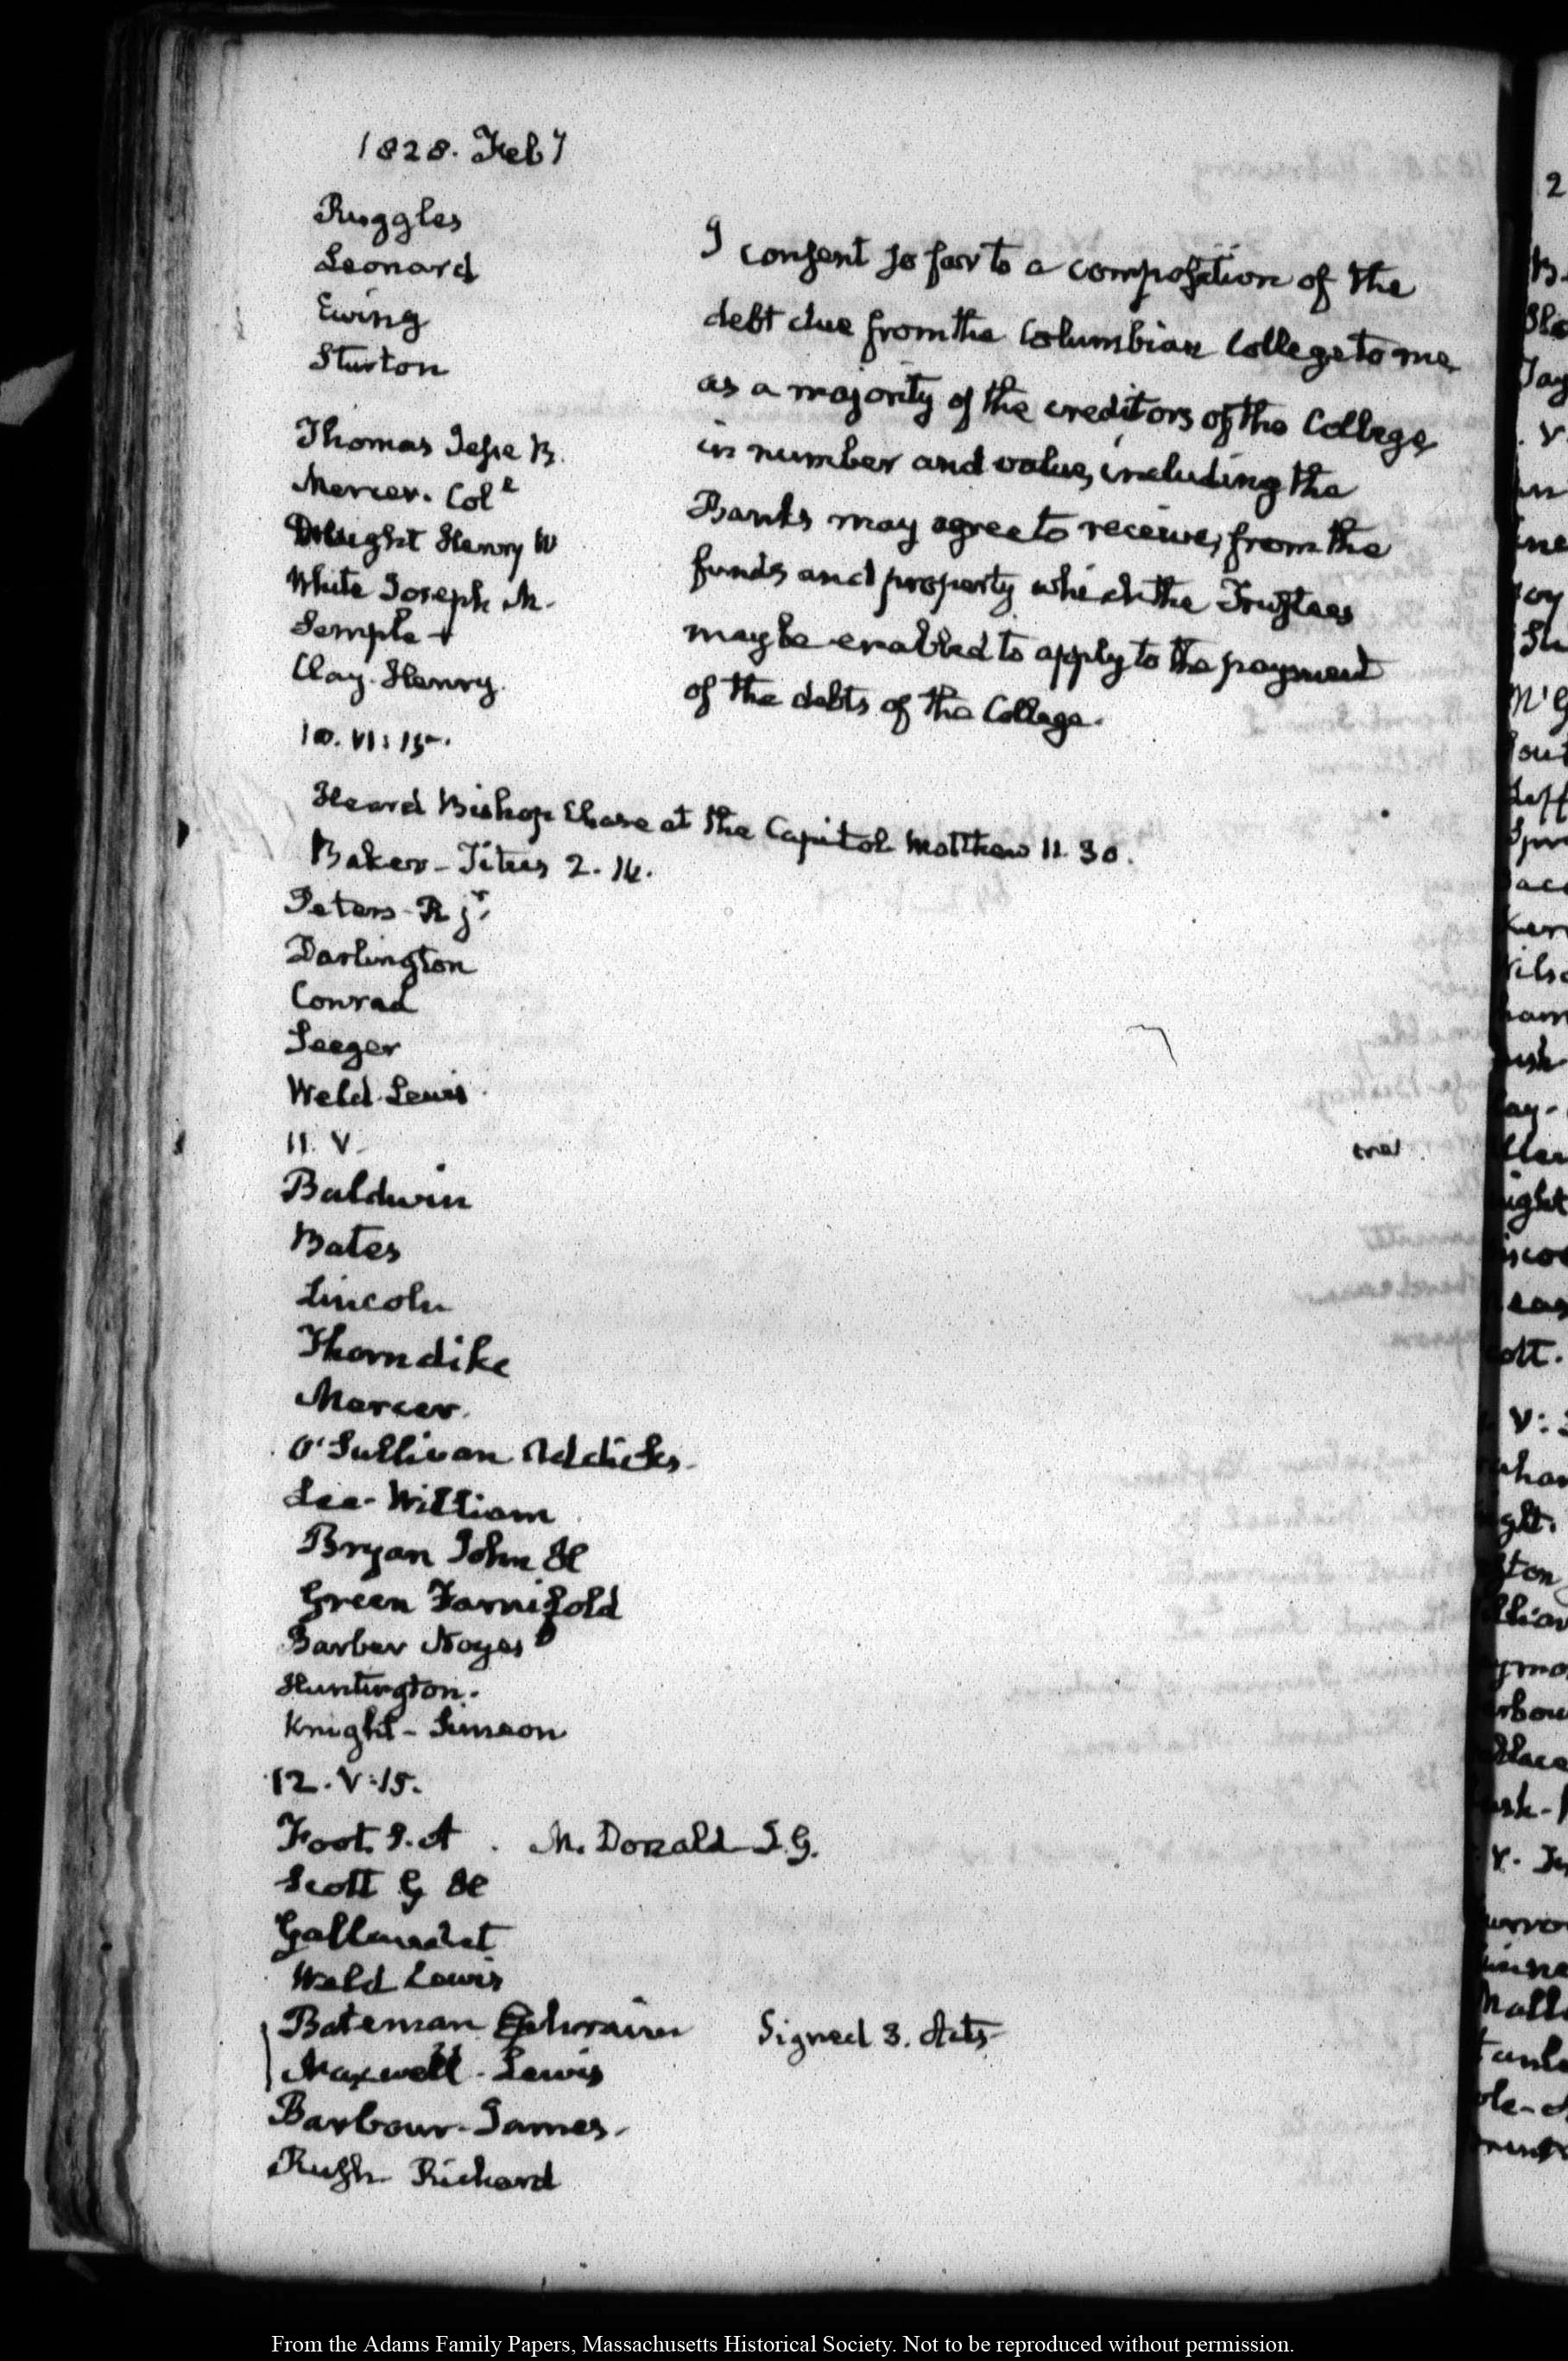 1828. Feby
Ruggles
Leonard
Ewing
Sturton
Thomas Jesse B.
Mercer. Col
Dwight Henry W
White Joseph M.
Semple +
Clay. Henry.
I consent so far to a composition of the
debt due from the Columbian College to me,
as a majority of the creditors of the College
in number and value, including the
Banks may agree to receive, from the
funds and property which the Trustees
may be enabled to apply to the payment
of the debts of the College.
10. VI: 15.
Heard Bishop Chase at the Capitol Matthew 11. 30.
Baker - Titus 2. 14.
Peters - R jr.
Darlington
Conrad
Seeger
Weld. Lewis
11. V.
Baldwin
Bates
Lincoln
Thorndike
Mercer.
O'Sullivan Addicks.
Lee - William
Bryan John H
Green Farnifold
Barber Noyes
Huntington.
Knight - Simeon
12. V:15.
Foot. S. A. McDonald S. G.
Scott G H
Gallaudet
Weld Lewis
Bateman Ephraim Signed 3. Acts
Maxwell - Lewis
Barbour - James.
Rush Richard
From the Adams Family Papers, Massachusetts Historical Society. Not to be reproduced without permission.